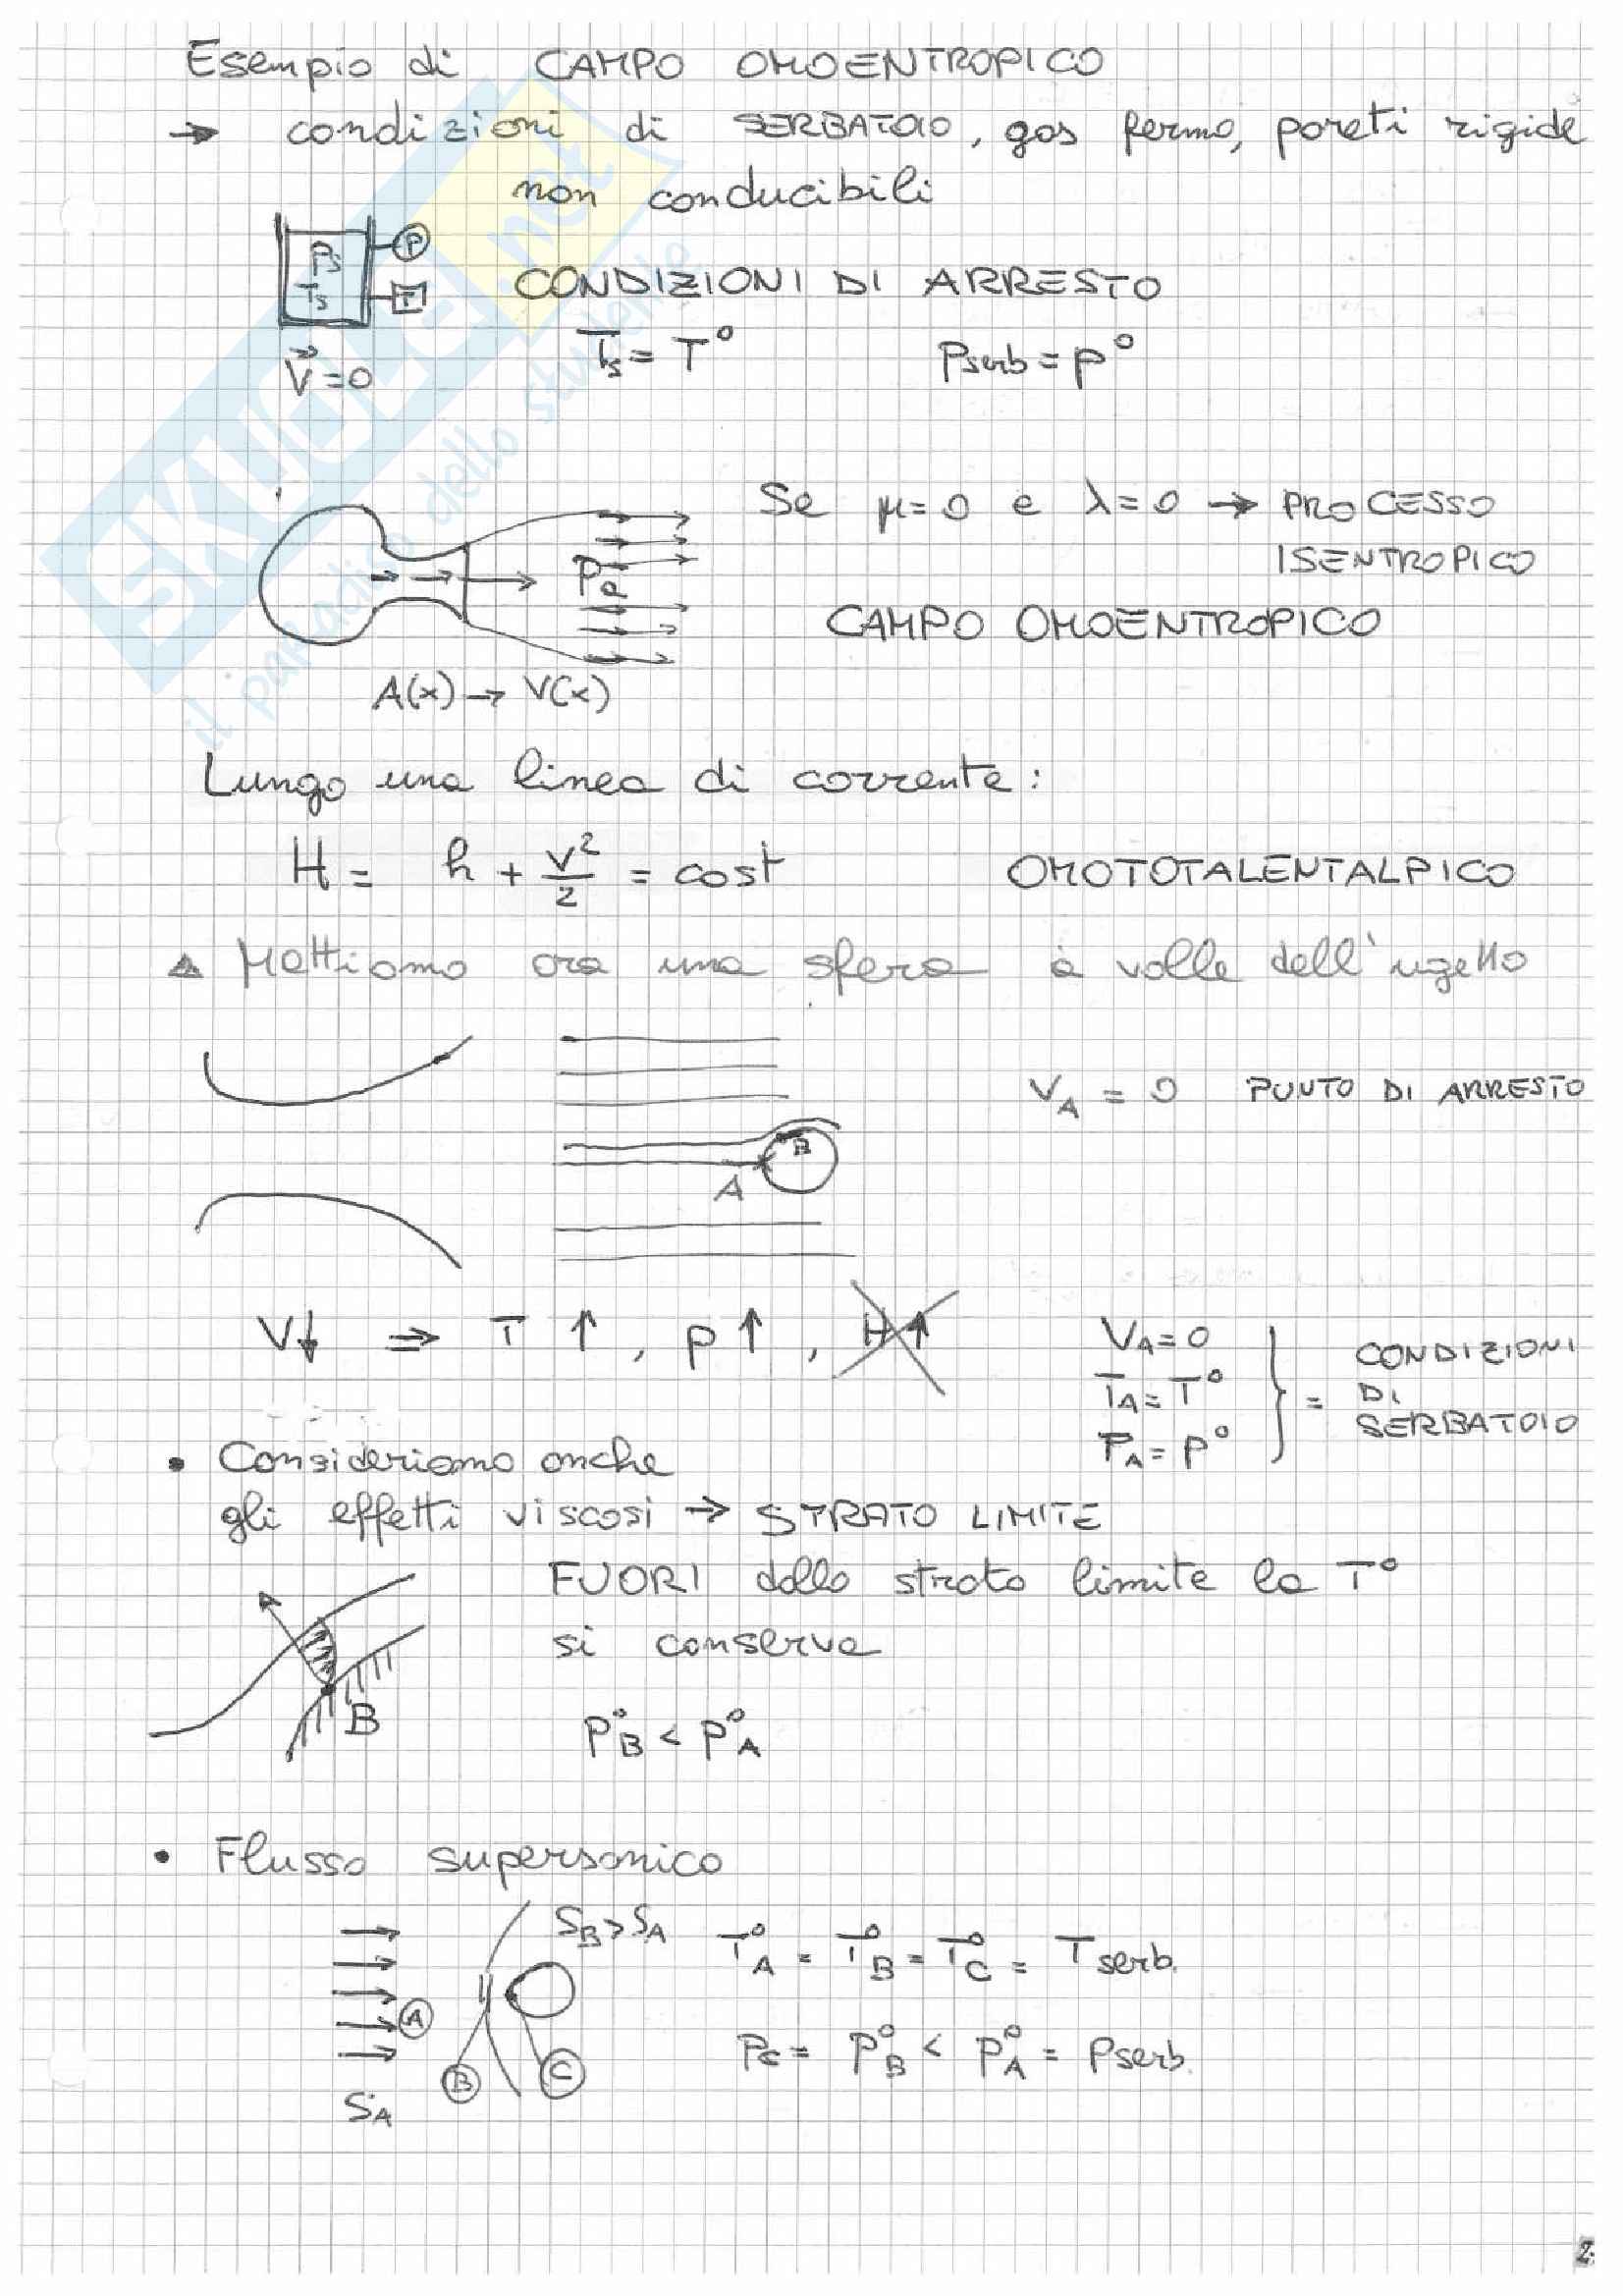 Esempio di CAMPO OMOENTROPICO
→ condizioni di SERBATOIO, gas fermo, pareti rigide
non conducibili
Ps
Ts
P
T
V⃗=0
CONDIZIONI DI ARRESTO
Ts = T° Pserb = p°
Se μ=0 e λ=0 → PROCESSO
ISENTROPICO
Pe
CAMPO OMOENTROPICO
A(x) → V(x)
Lungo una linea di corrente:
H = h + V²/2 = cost OMOTOTALENTALPICO
Mettiamo ora una sfera a valle dell'ugello
V_A = 0 PUNTO DI ARRESTO
B
A
V↓ ⇒ T ↑, p ↑, H ↑
V_A = 0
T_A = T°
P_A = p°
} = CONDIZIONI
DI
SERBATOIO
• Consideriamo anche
gli effetti viscosi → STRATO LIMITE
FUORI dallo strato limite la T°
si conserva
B
p°_B < p°_A
• Flusso supersonico
S_B > S_A T°_A = T°_B = T°_C = T serb.
A
B
C
p_C = p°_B < p°_A = p serb.
S_A
2.
SKUOLA.net
il paradiso dello studente